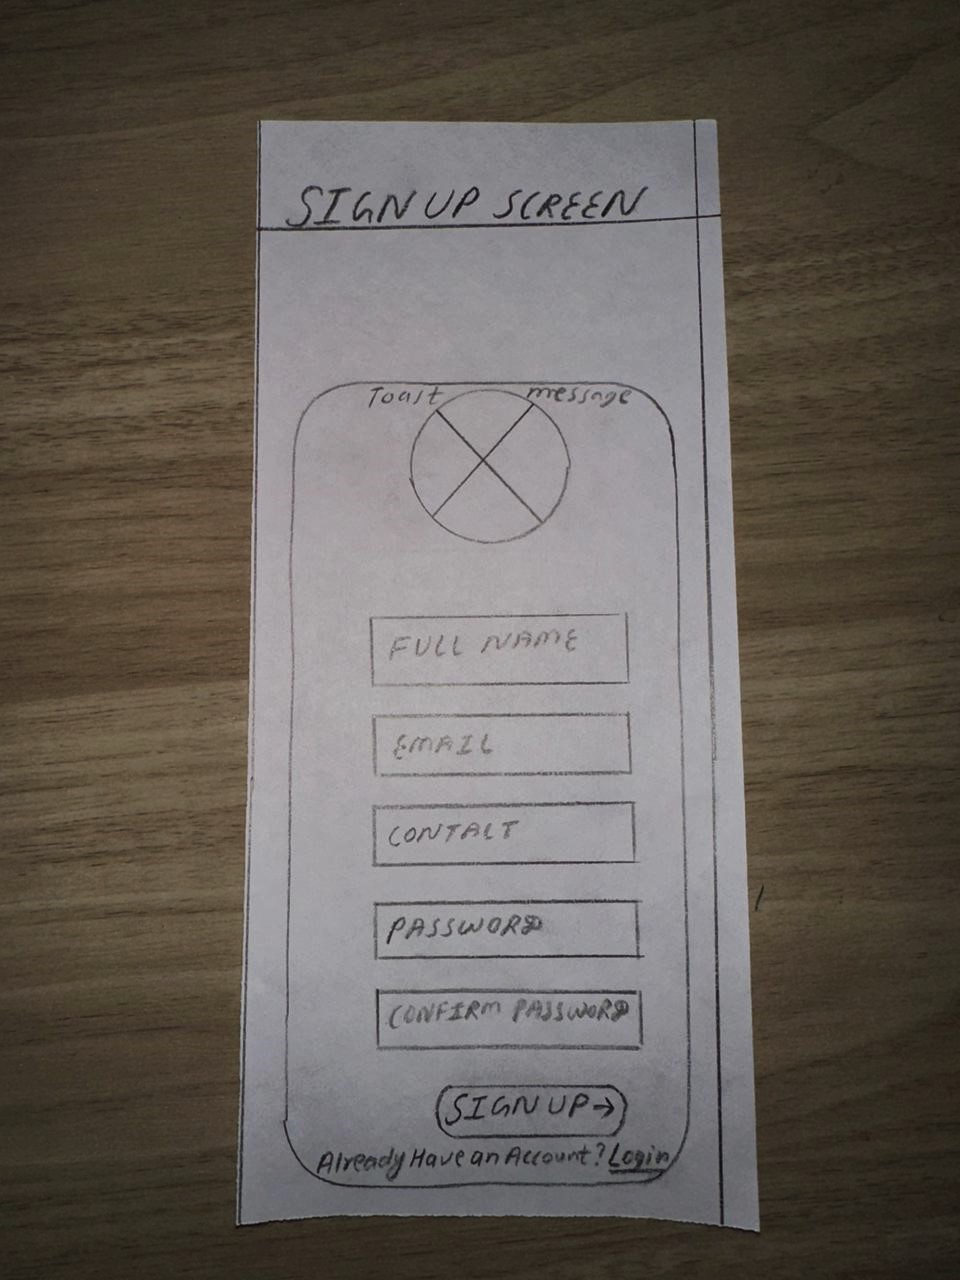 SIGN UP SCREEN
Toast message
FULL NAME
EMAIL
CONTACT
PASSWORD
CONFIRM PASSWORD
SIGN UP →
Already Have an Account? Login